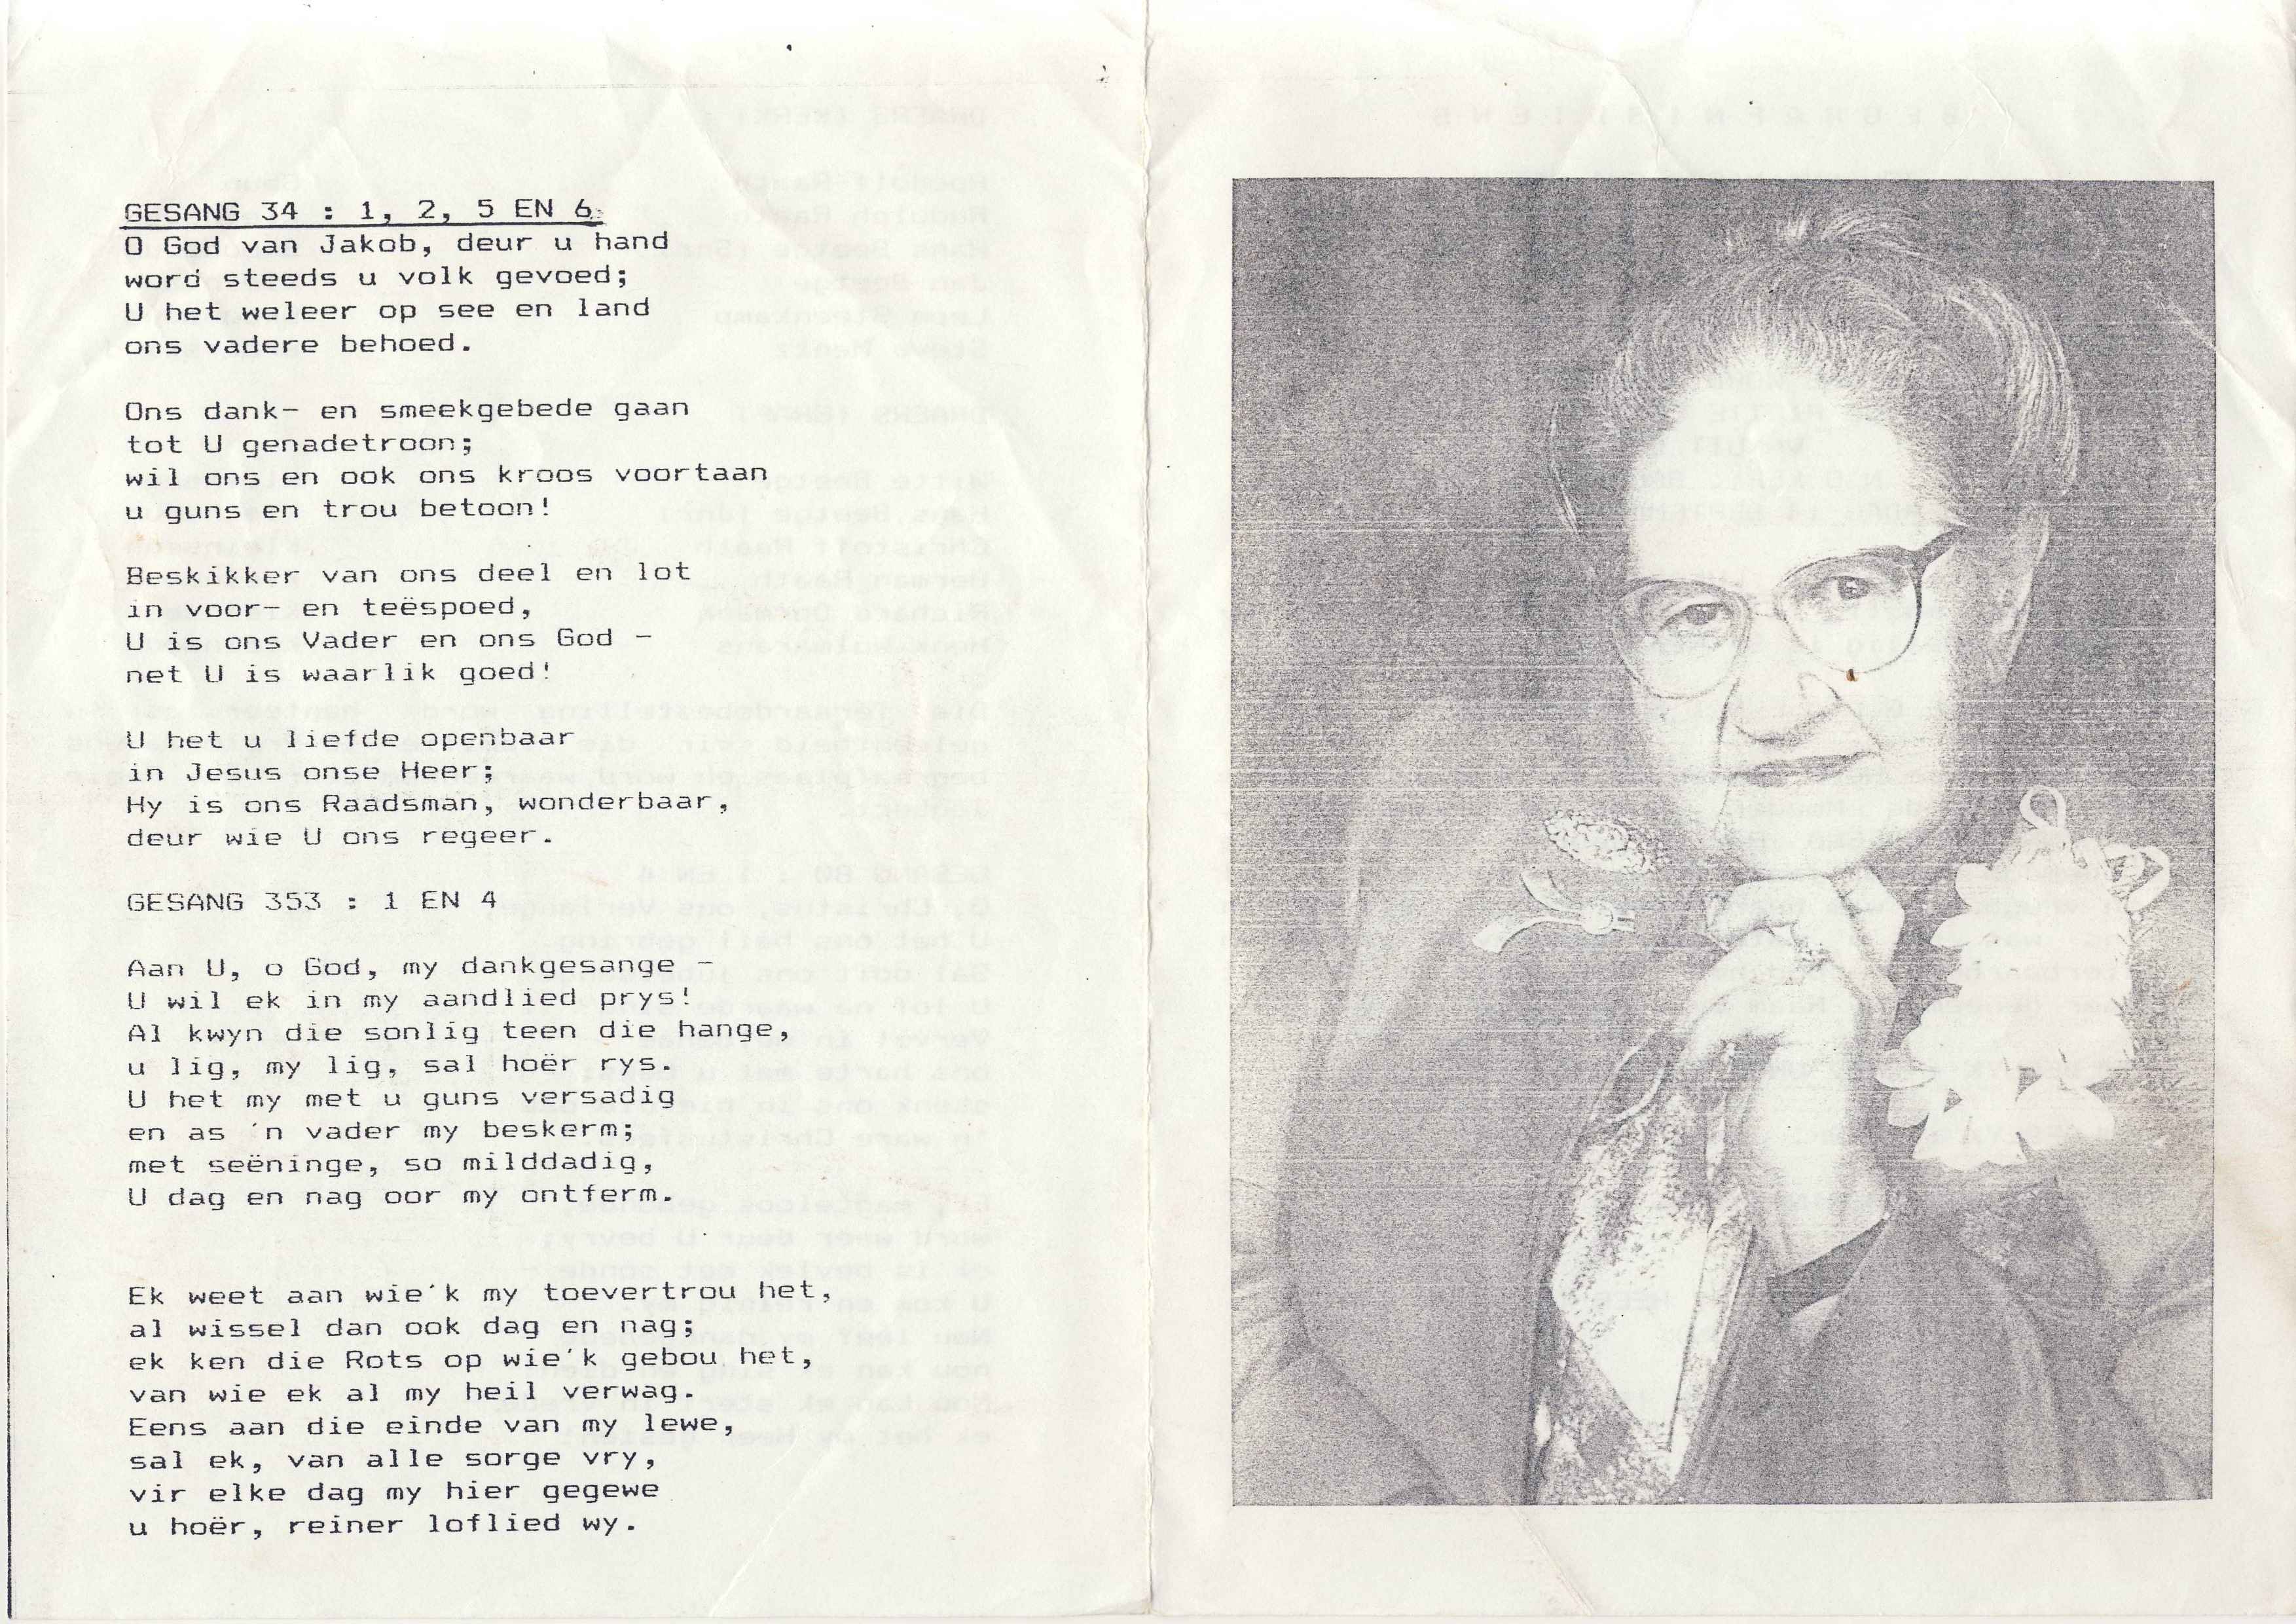 GESANG 34 : 1, 2, 5 EN 6.
O God van Jakob, deur u hand
word steeds u volk gevoed;
U het weleer op see en land
ons vadere behoed.
Ons dank- en smeekgebede gaan
tot U genadetroon;
wil ons en ook ons kroos voortaan
u guns en trou betoon!
Beskikker van ons deel en lot
in voor- en teëspoed,
U is ons Vader en ons God -
net U is waarlik goed!
U het u liefde openbaar
in Jesus onse Heer;
Hy is ons Raadsman, wonderbaar,
deur wie U ons regeer.
GESANG 353 : 1 EN 4
Aan U, o God, my dankgesange -
U wil ek in my aandlied prys!
Al kwyn die sonlig teen die hange,
u lig, my lig, sal hoër rys.
U het my met u guns versadig
en as 'n vader my beskerm;
met seëninge, so milddadig,
U dag en nag oor my ontferm.
Ek weet aan wie'k my toevertrou het,
al wissel dan ook dag en nag;
ek ken die Rots op wie'k gebou het,
van wie ek al my heil verwag.
Eens aan die einde van my lewe,
sal ek, van alle sorge vry,
vir elke dag my hier gegewe
u hoër, reiner loflied wy.